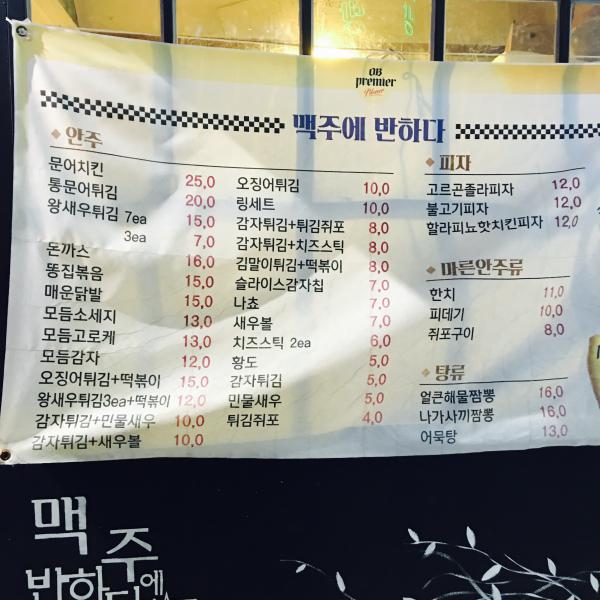 OB
premier
Pilsner
맥주에 반하다
◆안주
문어치킨 25,0
통문어튀김 20,0
왕새우튀김 7ea 15,0
3ea 7,0
돈까스 16,0
똥집볶음 15,0
매운닭발 15,0
모듬소세지 13,0
모듬고로케 13,0
모듬감자 12,0
오징어튀김+떡볶이 15,0
왕새우튀김3ea+떡볶이 12,0
감자튀김+민물새우 10,0
감자튀김+새우볼 10,0
오징어튀김 10,0
링세트 10,0
감자튀김+튀김쥐포 8,0
감자튀김+치즈스틱 8,0
김말이튀김+떡볶이 8,0
슬라이스감자칩 7,0
나쵸 7,0
새우볼 7,0
치즈스틱 2ea 6,0
황도 5,0
감자튀김 5,0
민물새우 5,0
튀김쥐포 4,0
◆피자
고르곤졸라피자 12,0
불고기피자 12,0
할라피뇨핫치킨피자 12,0
◆마른안주류
한치 11,0
피데기 10,0
쥐포구이 8,0
◆탕류
얼큰해물짬뽕 16,0
나가사끼짬뽕 16,0
어묵탕 13,0
맥주에
반하다